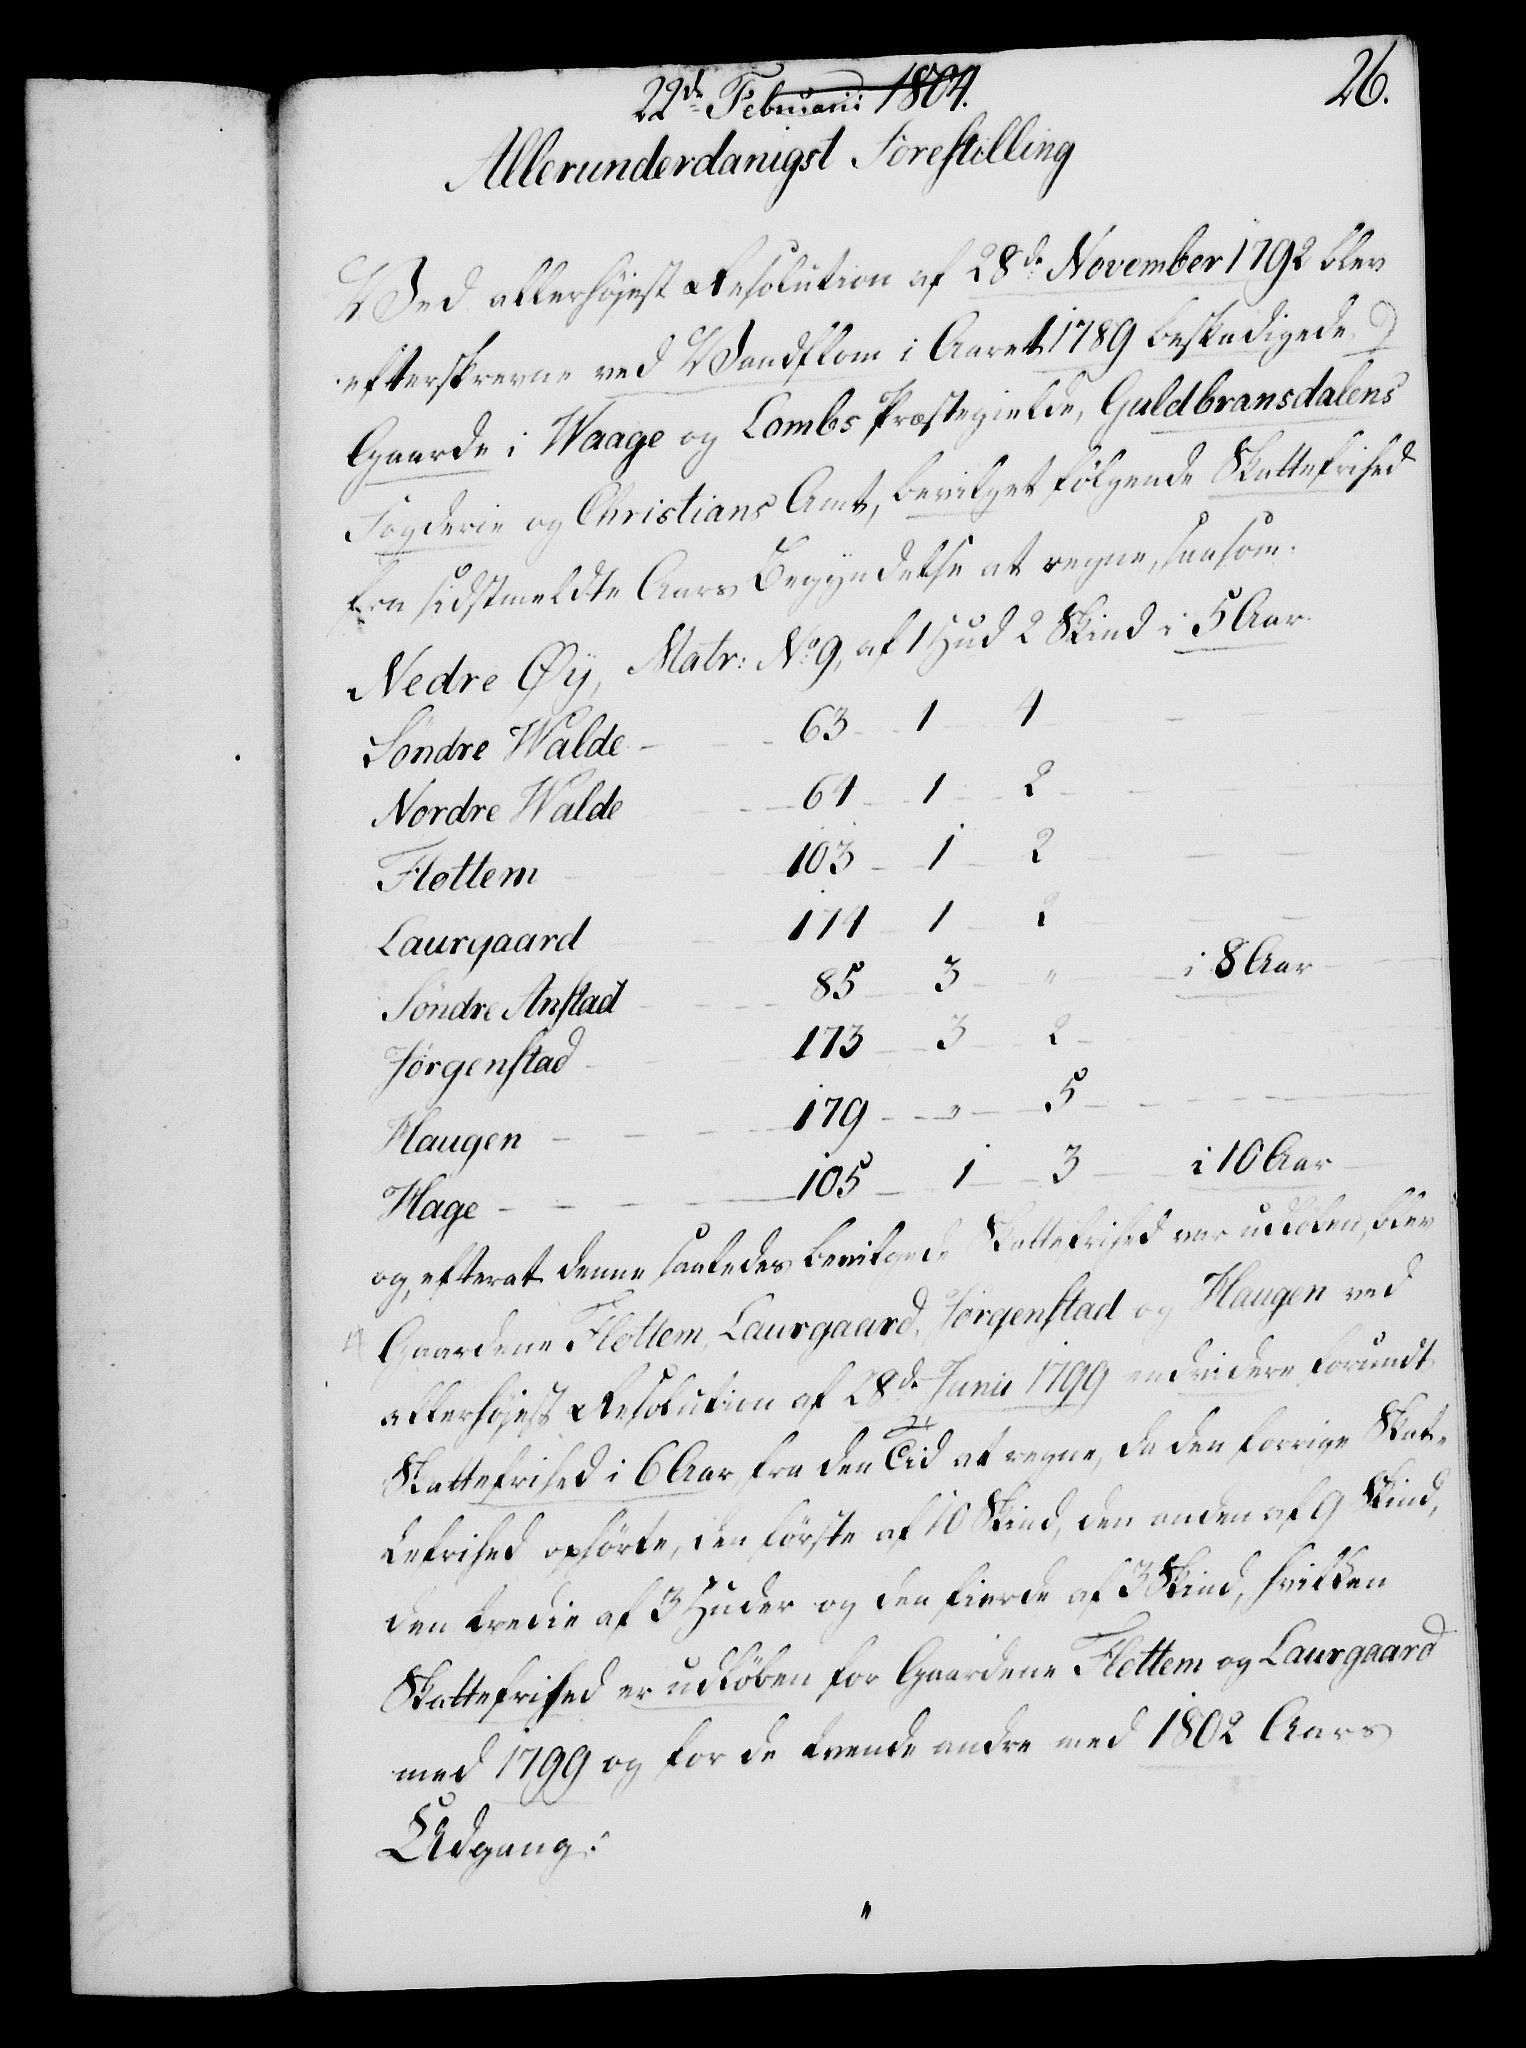 26.
22de Februarii 1804.
Allerunderdanigst Forestilling
Ved allerhøjest Resolution af 28de November 1792 blev
efterskrevne ved Vandflom i Aaret 1789 beskadigede
Gaarde i Waage og Lombs Præstegielde, Guldbransdalens
Fogderie og Christians Amt, bevilget følgende Skattefrihed
fra sidstmeldte Aars Begyndelse at regne, saasom:
Nedre Øÿ, Matr: No 9, af 1 Hud 2 Skind i 5 Aar.
Søndre Walde - 63 - 1 - 4
Nordre Walde - 64 - 1 - 2
Flottem - 103 - 1 - 2
Laurgaard - 174 - 1 - 2
Søndre Anstad - 85 - 3 - " - i 8 Aar
Jørgenstad - 173 - 3 - 2
Haugen - 179 - " - 5
Hage - 105 - 1 - 3 - i 10 Aar
og, efterat denne saaledes bevilgede Skattefrihed var udløben, blev
Gaardene Flottem, Laurgaard, Jørgenstad og Haugen ved
allerhøjest Resolution af 28de Junii 1799 endvidere forundt
Skattefrihed i 6 Aar fra den Tid at regne, da den forrige Skat-
tefrihed ophørte, den første af 10 Skind, den anden af 9 Skind,
den tredie af 3 Huder og den fierde af 3 Skind, hvilken
Skattefrihed er udløben for Gaardene Flottem og Laurgaard
med 1799 og for de tvende andre med 1802 Aars
Udgang.
"